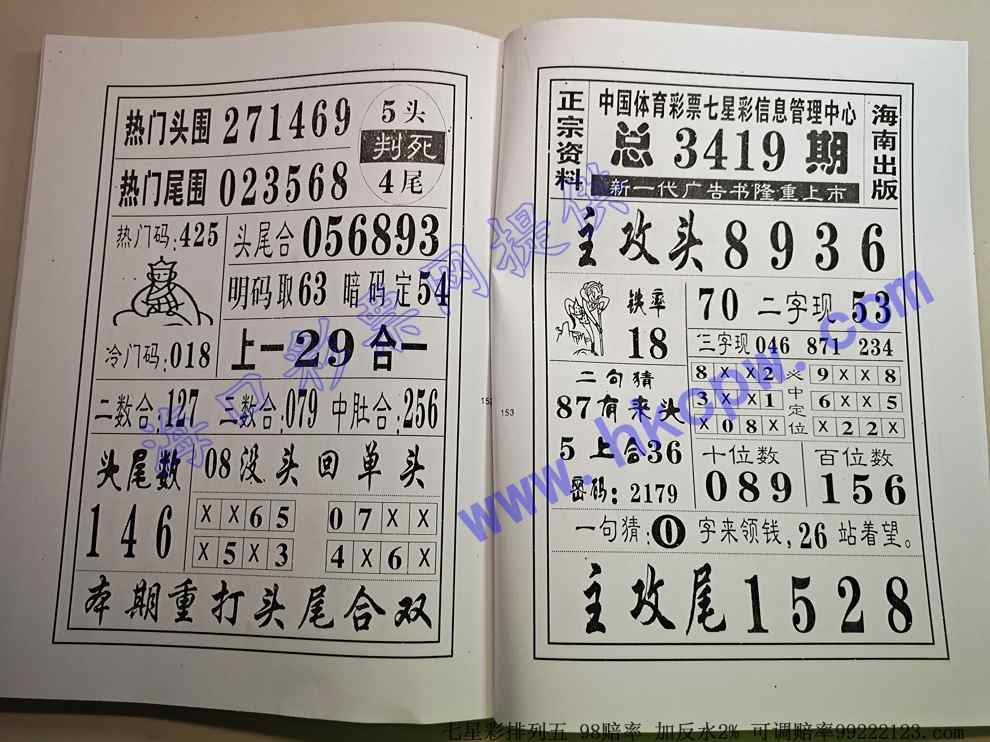 热门头围 271469
热门尾围 023568
5头
判死
4尾
热门码:425
冷门码:018
头尾合 056893
明码取63 暗码定54
上一29合一
二数合:127 三数合:079 中肚合:256
头尾数
146
08没头回单头
XX65 07XX
X5X3 4X6X
本期重打头尾合双
152
153
正宗资料
中国体育彩票七星彩信息管理中心
总3419期
新一代广告书隆重上市
海南出版
主攻头8936
铁率
18
70二字现53
三字现 046 871 234
二句猜
87有来头
5上合36
密码:2179
8XX2 9XX8
3XX1 6XX5
X08X X22X
必中定位
十位数 百位数
089 156
一句猜:0字来领钱,26站着望。
主攻尾1528
海口彩票网提供
www.hkcpw.com
七星彩排列五 98赔率 加反水2% 可调赔率99222123.com